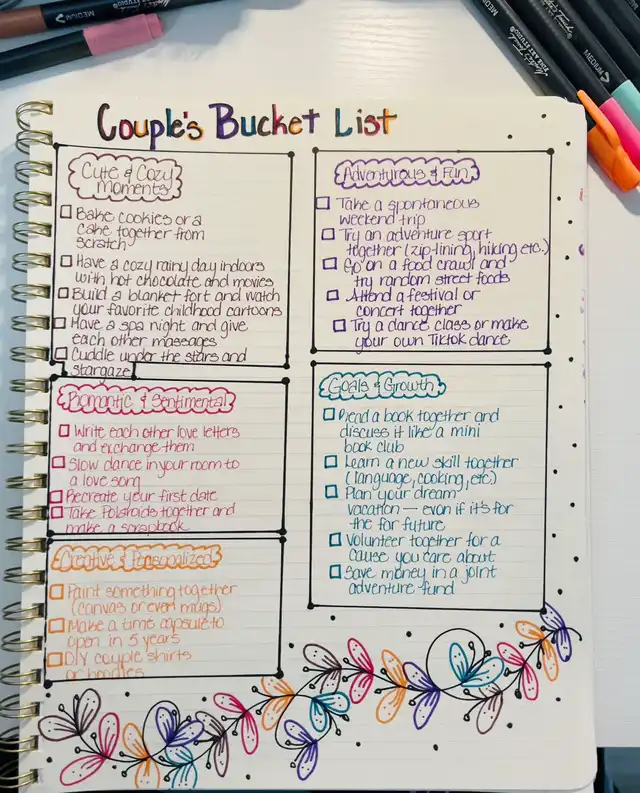 MEDIUM
MEDIUM
MEDIUM
Couple's Bucket List
Cute & Cozy
Moments
Bake cookies or a
cake together from
scratch
Have a cozy rainy day indoors
with hot chocolate and movies
Build a blanket fort and watch
your favorite childhood cartoons
Have a spa night and give
each other massages
Cuddle under the stars and
stargaze
Romantic & Sentimental
Write each other love letters
and exchange them
Slow dance in your room to
a love song
Recreate your first date
Take Polaroids together and
make a scrapbook
Creative & Personalized
Paint something together
(canvas or even mugs)
Make a time capsule to
open in 5 years
DIY couple shirts
or hoodies
Adventurous & Fun
Take a spontaneous
weekend trip
Try an adventure sport
together (zip-lining, hiking etc.)
Go on a food crawl and
try random street foods
Attend a festival or
concert together
Try a dance class or make
your own Tiktok dance
Goals & Growth
Read a book together and
discuss it like a mini
book club
Learn a new skill together
(language, cooking, etc)
Plan your dream
vacation — even if it's for
the far future
Volunteer together for a
cause you care about
Save money in a joint
adventure fund